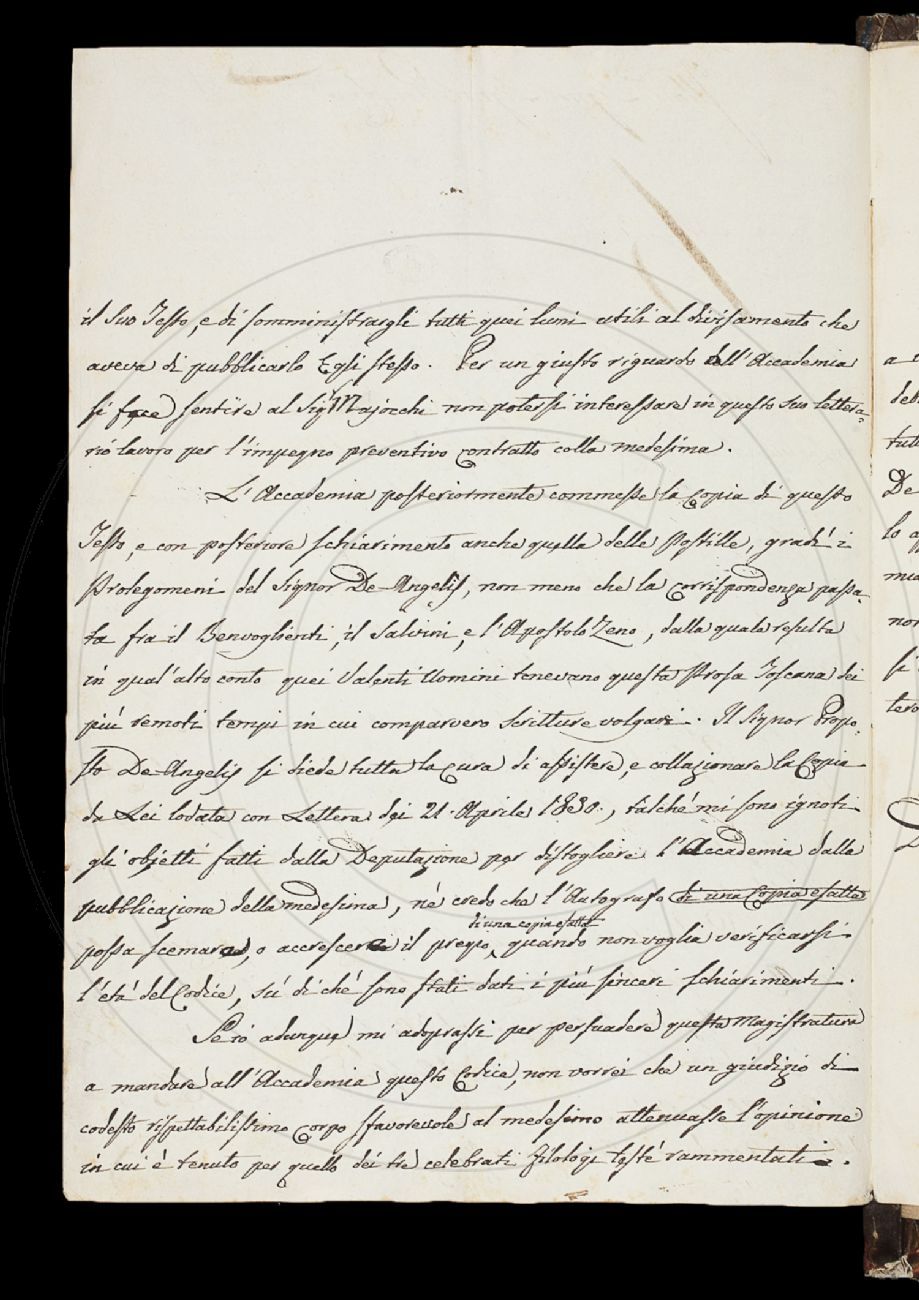 il suo Testo, e di somministrargli tutti quei lumi utili al divisamento che
aveva di pubblicarlo Egli stesso. Per un giusto riguardo dell'Accademia
si fece sentire al Sigr Majocchi non potersi interessare in questo suo lettera=
rió lavoro per l'impegno preventivo contratto colla medesima.
L'Accademia posteriormente commesse la Copia di questo
Testo, e con posteriore schiarimento anche quella delle Postille, gradì i
Prolegomeni del Signor De-Angelis, non meno che la corrispondenza passa=
ta fra il Benvoglienti, il Salvini, e, l'Apostolo Zeno, dalla quale resulta
in qual'alto conto quei Valenti Uomini tenevano questa Prosa Toscana dei
più remoti tempi in cui comparvero Scritture volgari. Il Signor Propo=
sto De-Angelis si diede tutta la cura di assistere, e collazionare la Copia
da Lei lodata con Lettera dei 21. Aprile 1830., talchè mi sono ignoti
gli objetti fatti dalla Deputazione per distogliere l'Accademia dalla
pubblicazione della medesima, nè credo che l'Autografo di una Copia esatta
di una copia esatta
possa scemare, o accrescere il pregio, quando non voglia verificarsi
l'età del Codice, sù di chè sono stati dati i più sinceri schiarimenti.
Se io adunque mi adoprassi per persuadere questa Magistratura
a mandare all'Accademia questo Codice, non vorrei che un giudizio di
codesto rispettabilissimo corpo sfavorevole al medesimo attenuasse l'opinione
in cui è tenuto per quello dei trè celebrati filologi testé rammentati.
a
De
lo
non
si